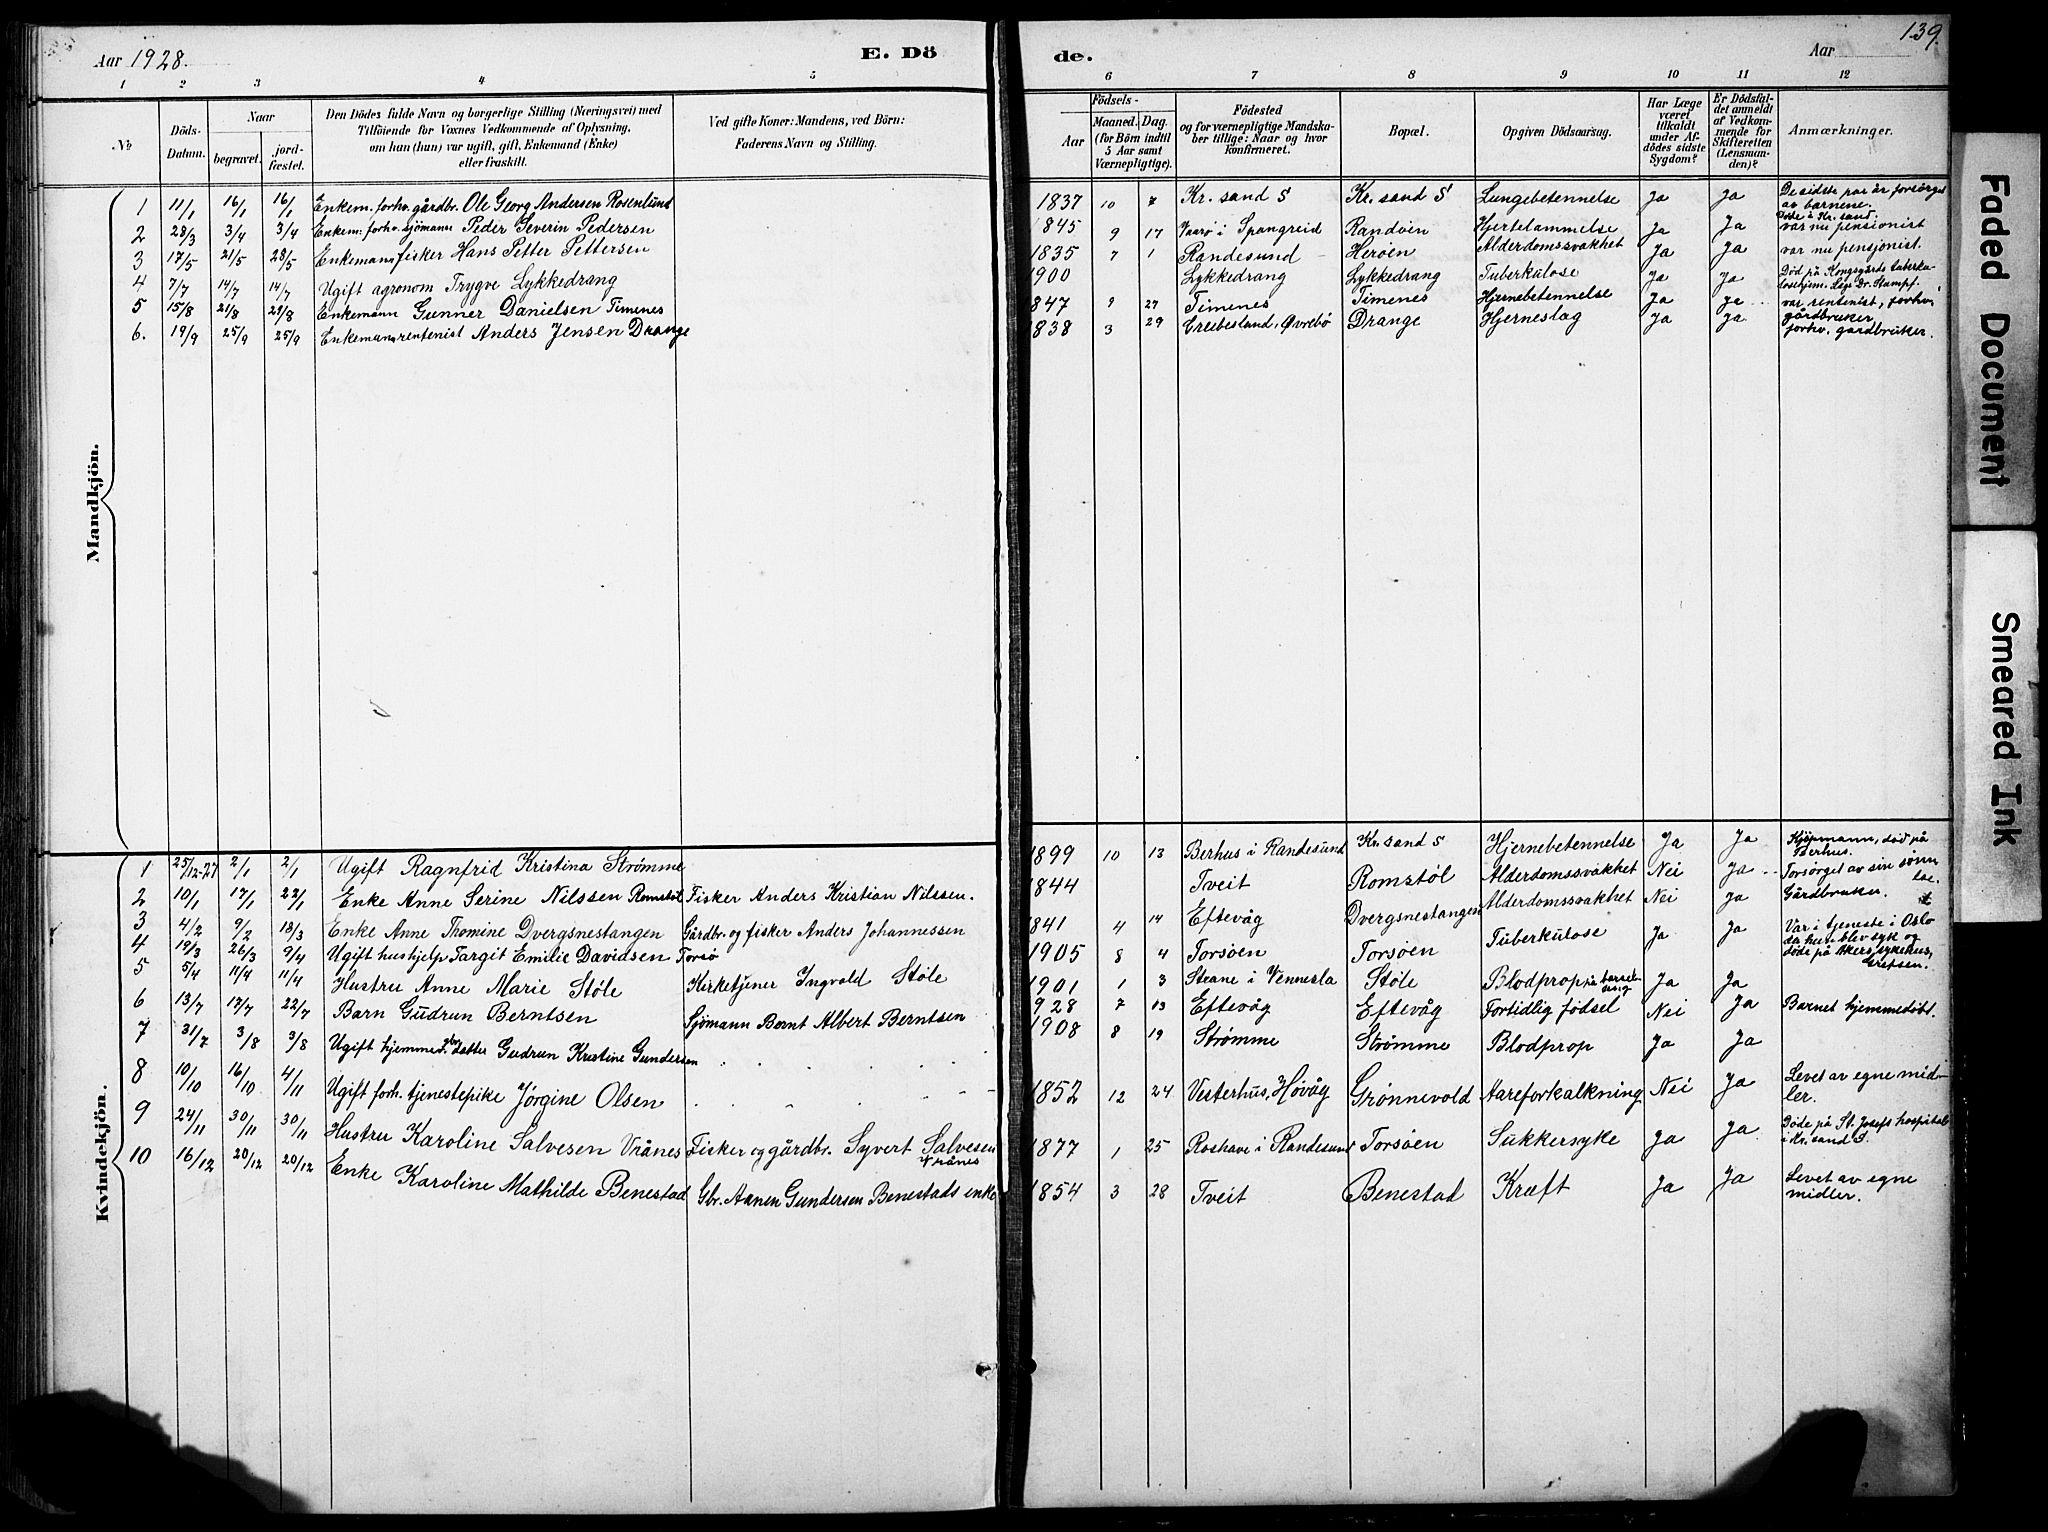 139.
Aar 1928. E. Dö de. Aar
1 2 3 4 5 6 7 8 9 10 11 12
№ Döds-Datum. Naar begravet. jordfæstet. Den Dödes fulde Navn og borgerlige Stilling (Næringsvei) med Tilföiende for Voxnes Vedkommende af Oplysning, om han (hun) var ugift, gift, Enkemand (Enke) eller fraskilt. Ved gifte Koner: Mandens, ved Börn: Faderens Navn og Stilling. Födsels- Aar Maaned. Dag. (for Börn indtil 5 Aar samt Værnepligtige). Födested og for værnepligtige Mandskaber tillige: Naar og hvor konfirmeret. Bopæl. Opgiven Dödsaarsag. Har Læge været tilkaldt under Afdödes sidste Sygdom? Er Dödsfaldet anmeldt af Vedkommende for Skifteretten (Lensmanden)? Anmærkninger.
Mandkjön.
1 11/1 16/1 16/1 Enkem. forhv. gårdbr. Ole Georg Andersen Rosenlund 1837 10 7 Kr. sand S Kr. sand S Lungebetennelse Ja Ja De sidste par år forsörget av barnene.
2 28/3 3/4 3/4 Enkem. forhv. sjömann Peder Severin Pedersen 1845 9 17 Vaarø i Spangreid Randøen Hjertelammelse Ja Ja Døde i Kr. sand: var nu pensionist
3 17/5 21/5 28/5 Enkemann fisker Hans Petter Pettersen 1835 7 1 Randesund Herøen Alderdomssvakhet Ja Ja var nu pensjonist.
4 7/7 14/7 14/7 Ugift agronom Trygve Lykkedrang 1900 Lykkedrang Lykkedrang Tuberkulose Ja Ja Död på Kongsgårds tuberkulosehjem. Lege Dr. Stumpf.
5 15/8 21/8 29/8 Enkemann Gunner Danielsen Timenes 1847 9 27 Timenes Timenes Hjernebetennelse Ja Ja var rentenist, forhv. gårdbruker.
6. 19/9 25/9 25/9 Enkemann rentenist Anders Jensen Drange 1838 3 29 Øvrebö Drange Hjerneslag Ja Ja forhv. gårdbruker.
Kvindekjön.
1 25/12-27 2/1 2/1 Ugift Ragnfrid Kristina Strømme 1899 10 13 Berhus i Randesund Kr. sand S Hjernebetennelse Ja Ja Kjöpmann, död på Berhus.
2 10/1 17/1 22/1 Enke Anne Serine Nilssen Romstöl Fisker Anders Kristian Nilssen. 1844 Tveit Romstøl Alderdomssvakhet Nei Ja Forsørget av sin sønn
3 4/2 9/2 18/3 Enke Anne Thomine Dvergsnestangen Gårdbr. og fisker Anders Johannessen 1841 4 14 Eftevåg Dvergsnestangen Alderdomssvakhet Nei Ja Gårdbruker.
4 19/3 26/3 9/4 Ugift hushjelp Targit Emilie Davidsen Torsö 1905 8 4 Torsøen Torsøen Tuberkulose Ja Ja Var i tjeneste i Oslo da hun blev syk og døde på Akers sykehus, Grefsen.
5 5/4 11/4 11/4 Hustru Anne Marie Støle Kirketjener Ingvald Støle 1901 1 3 Steane i Vennesla Støle Blodprop på barselseng Ja Ja
6 13/7 17/7 22/7 Barn Gudrun Berntsen Sjömann Bernt Albert Berntsen 1928 7 13 Eftevåg Eftevåg Fortidlig fødsel Nei Ja Barnet hjemmedöbt.
7 31/7 3/8 3/8 Ugift hjemmev. datter Gudrun Kristine Gundersen 1908 8 19 Strømme Strømme Blodprop Ja Ja
8 10/10 16/10 4/11 Ugift forh. tjenestepike Jörgine Olsen 1852 12 24 Vesterhus, Høvåg Grønnevold Aareforkalkning Nei Ja Levet av egne midler.
9 24/11 30/11 30/11 Hustru Karoline Salvesen Vrånes Fisker og gårdbr. Syvert Salvesen Vrånes 1877 1 25 Roshave i Randesund Torsøen Sukkersyke Ja Ja Døde på St. Josefs hospital i Kr. sand S.
10 16/12 20/12 20/12 Enke Karoline Mathilde Benestad Gbr. Aanen Gundersen Benestads enke 1854 3 28 Tveit Benestad Kræft Ja Ja Levet av egne midler.
Faded Document
Smeared Ink